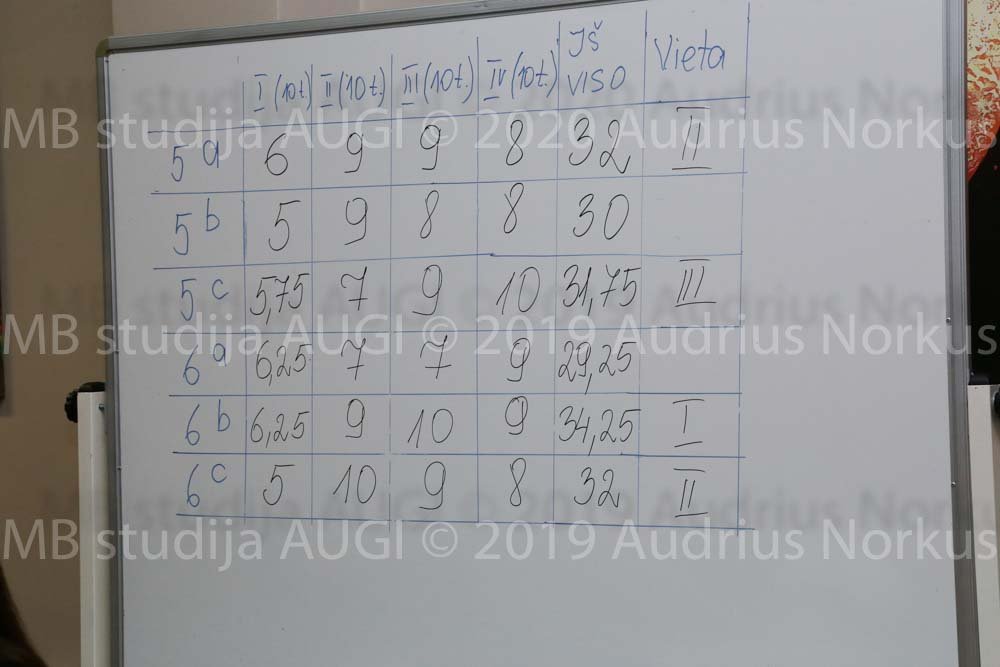 I (10t.) II (10t.) III (10t.) IV (10t.) IŠ VISO Vieta
5a 6 9 9 8 32 II
5b 5 9 8 8 30
5c 5,75 7 9 10 31,75 III
6a 6,25 7 7 9 29,25
6b 6,25 9 10 9 34,25 I
6c 5 10 9 8 32 II
MB studija AUGI © 2029 Audrius Norkus
MB studija AUGI © 2019 Audrius Norkus
MB studija AUGI © 2019 Audrius Norkus